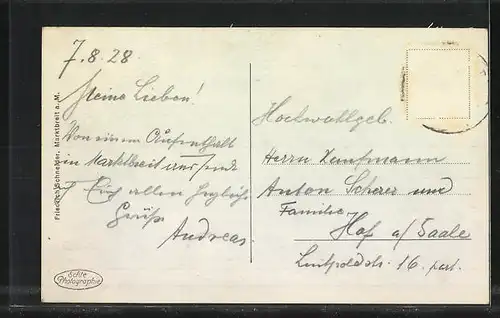 7.8.28
Meine Lieben!
Von einem Aufenthalt
in Marktbreit
Euch allen herzliche
Grüße
Andreas
Hochwohlgeb.
Herrn Kaufmann
Anton Scherer und
Familie
Hof a/Saale
Luitpoldstr. 16. part.
Friedrich Schneider, Marktbreit a. M.
Echte
Photographie